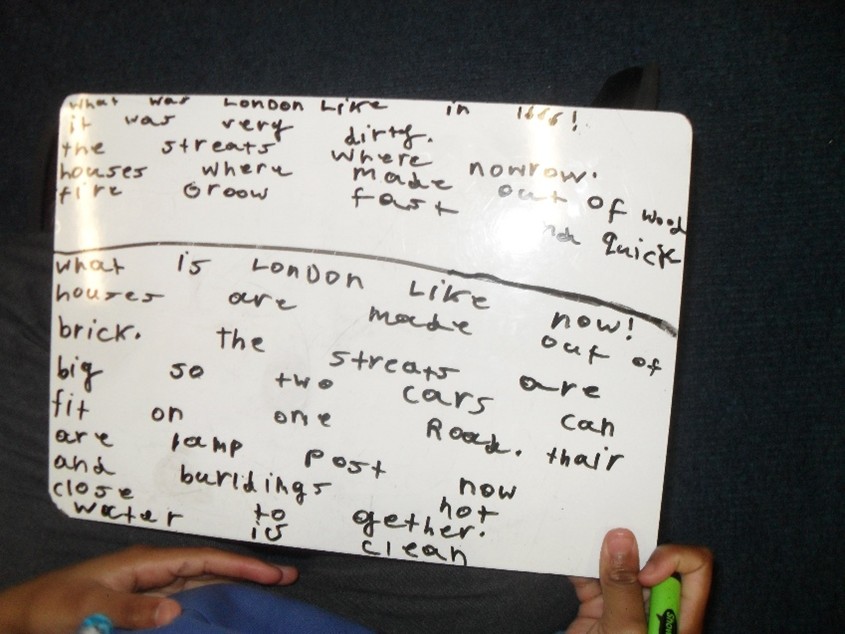 what was LONDON Like in 1666!
it was very dirty.
the streats where nowrow.
houses where made out of wood
fire Groow fast and quick
what is LONDON Like now!
houses are made out of
brick. the streats are
big so two cars can
fit on one Road. thair
are lamp post now
and burldings not
close to gether.
water is clean